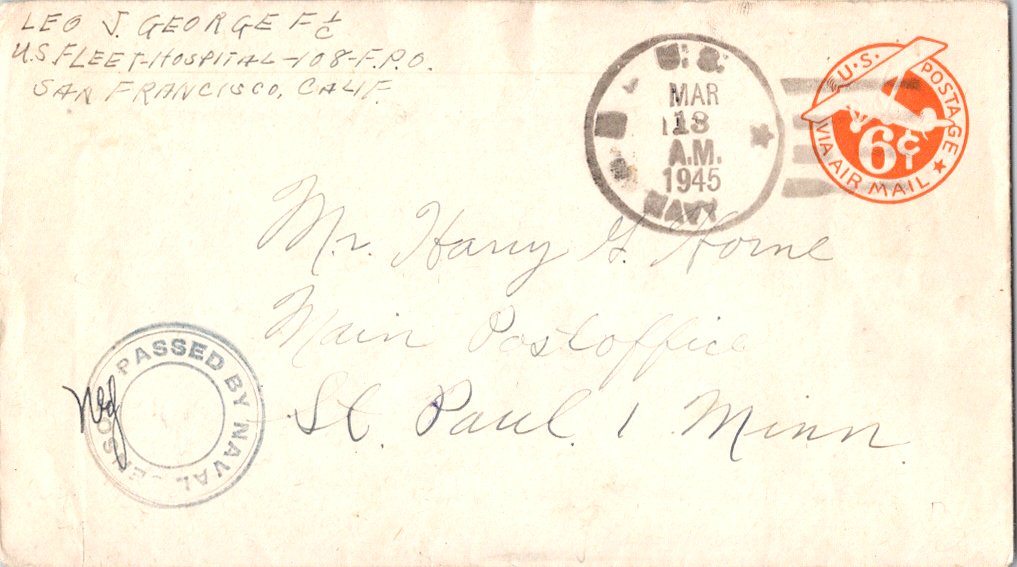 LEO J. GEORGE F 1/c
U.S. FLEET-HOSPITAL-108-F.P.O.
SAN FRANCISCO, CALIF.
U.S.
MAR
13
A.M.
1945
NAVY
U.S. POSTAGE
6¢
VIA AIR MAIL
Mr. Harry G. Horne
Main Postoffice
St. Paul. 1 Minn.
PASSED BY NAVAL CENSOR